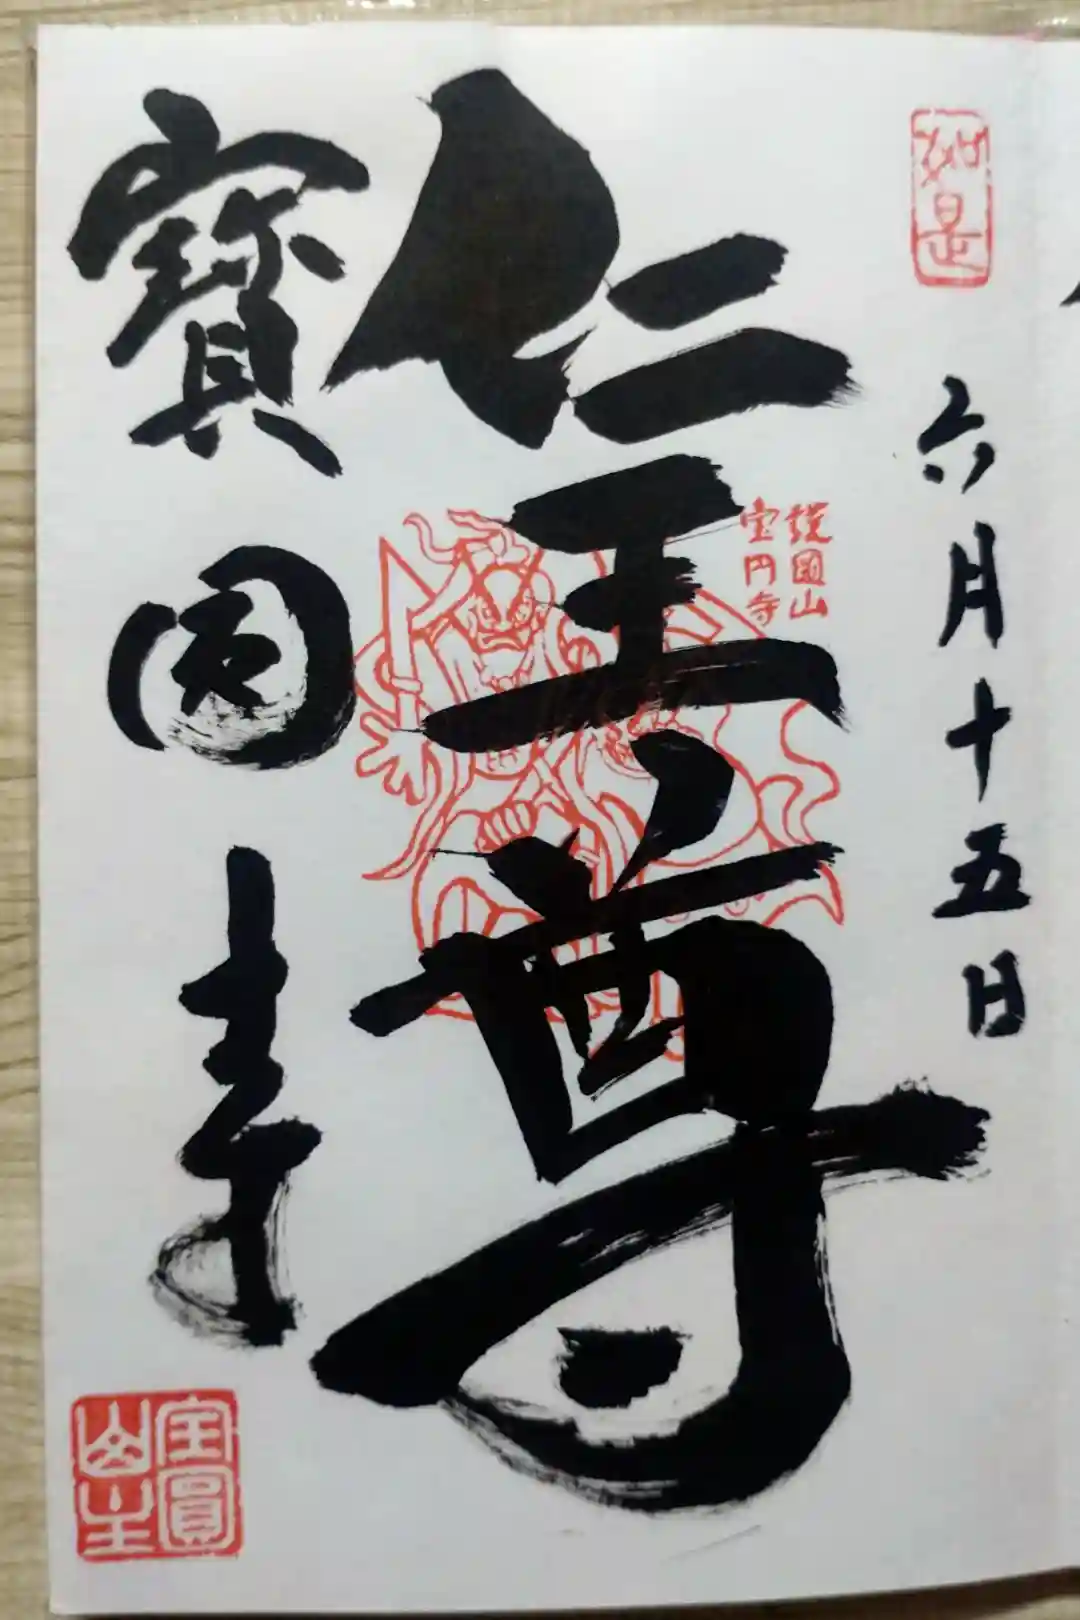 如是
六月十五日
護國山
宝円寺
仁王尊
寶圓寺
宝圓
山主